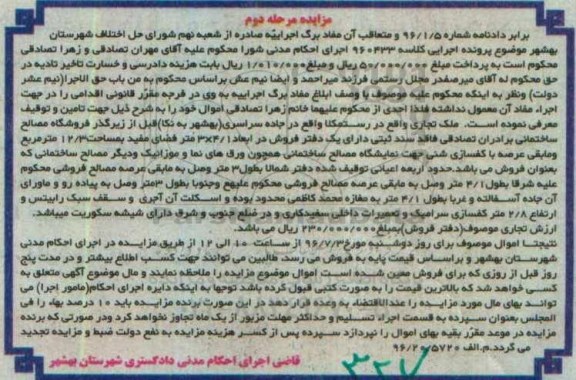 مزایده مرحله دوم
برابر دادنامه شماره ۹۶/۱/۵ و متعاقب آن مفاد برگ اجراییه صادره از شعبه نهم شورای حل اختلاف شهرستان
بهشهر موضوع پرونده اجرایی کلاسه ۹۶۰۴۳۳ اجرای احکام مدنی شورا محکوم علیه آقای مهران تصادقی و زهرا تصادقی
محکوم است به پرداخت مبلغ ریال و مبلغ ریال بابت هزینه دادرسی و خسارت تاخیر تادیه در
حق محکوم له آقای میرصفدر مجلل رستمی فرزند میراحمد و ایضا نیم عشر براساس محکوم به من باب حق الاجرا(نیم عشر
دولت) ونظر به اینکه محکوم علیه موصوف با وصف ابلاغ مفاد برگ اجراییه به وی در فرجه مقرر قانونی اقدامی را در جهت
اجراء مفاد آن معمول نداشته فلذا احدی از محکوم علیهما خانم زهرا تصادقی اموال خود را به شرح ذیل جهت تامین و توقیف
معرفی نموده است. ملک تجاری واقع در رستمکلا واقع در جاده سراسری(بهشهر به نکا)قبل از زیرگذر فروشگاه مصالح
ساختمانی برادران تصادقی فاقد سند ثبتی دارای یک دفتر فروش در ابعاد ۳×۴/۱ متر فضای مفید بمساحت ۱۲/۳ مترمربع
ومابقی عرصه با کفسازی شنی جهت نمایشگاه مصالح ساختمانی همچون ورق های نما و موزائیک ودیگر مصالح ساختمانی که
بعنوان فروش می باشد.حدود اربعه اعیانی توقیف شده دفتر شمالا بطول ۳ متر وصل به مابقی عرصه مصالح فروشی محکوم
علیه شرقا بطول ۴/۱ متر وصل به مابقی عرصه مصالح فروشی محکوم علیهم وجنوبا بطول ۳متر وصل به پیاده رو و ماورای
آن جاده آسفالته و غربا بطول ۴/۱ متر به مغازه محمد کاظمی محدود بوده و اسکلت آن آجری و سقف سبک رابیتس و
ارتفاع ۲/۸ متر کفسازی سرامیک و تعمیرات داخلی سفیدکاری و در ضلع جنوب و شرق دارای شیشه سکوریت میباشد.
ارزش تجاری موصوف(دفتر فروش)بمبلغ ۲۳۰/۰۰۰/۰۰۰ ریال می باشد.
نتیجتا اموال موصوف برای روز دوشنبه مورخ ۹۶/۷/۳ از ساعت ۱۰ الی ۱۲ از طریق مزایده در اجرای احکام مدنی
شهرستان بهشهر و براساس قیمت پایه به فروش می رسد، طالبین می توانند جهت کسب اطلاع بیشتر و در مدت پنج
روز قبل از روزی که برای فروش معین شده است اموال موضوع مزایده را ملاحظه نمایند و مال موضوع آگهی متعلق به
کسی خواهد شد که بالاترین قیمت را به صورت کتبی قبول کرده باشد توجها به اینکه دایره اجرای احکام(مامور اجرا) می
تواند بهای مال مورد مزایده را عندالاقتضاء به وعده قرار دهد در این صورت برنده مزایده باید ۱۰ درصد بها، را فی
المجلس بعنوان سپرده به قسمت اجراء تسلیم و حداکثر مهلت مزبور از یک ماه تجاوز نخواهد کرد ودر صورتی که برنده
مزایده در موعد مقرر بقیه بهای اموال را نپردازد سپرده پس از کسر هزینه مزایده به نفع دولت ضبط و مزایده تجدید
می گردد.م.الف ۹۶/۲۰/۵۷۲۰
قاضی اجرای احکام مدنی دادگستری شهرستان بهشهر